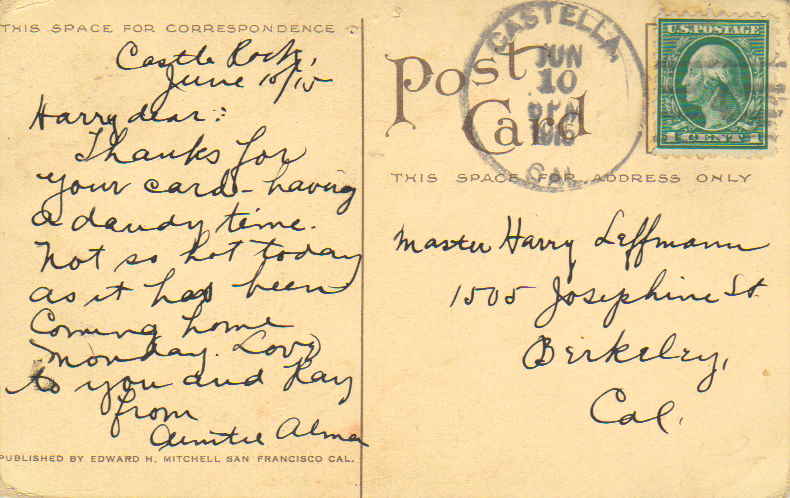 THIS SPACE FOR CORRESPONDENCE
Castle Rock,
June 10/15
Harry dear:
Thanks for
your card - having
a dandy time.
Not so hot today
as it has been
Coming home
Monday. Love
to you and Ray
from
Auntie Alma
PUBLISHED BY EDWARD H. MITCHELL SAN FRANCISCO CAL.
Post
Card
CASTELLA,
JUN
10
CAL.
U.S. POSTAGE
1 CENT 1
THIS SPACE FOR ADDRESS ONLY
Master Harry Leffmann
1505 Josephine St.
Berkeley,
Cal.